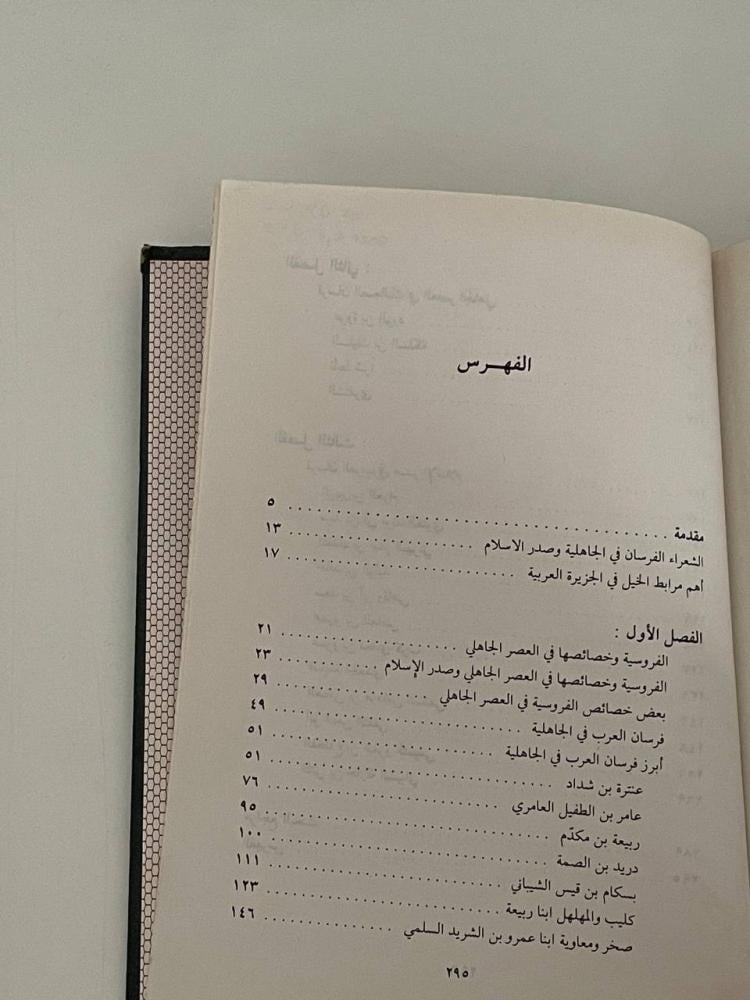 الفهـرس
مقدمة ........................................ ٥
الشعراء الفرسان في الجاهلية وصدر الاسلام .................... ١٣
أهم مرابط الخيل في الجزيرة العربية ........................ ١٧
الفصل الأول :
الفروسية وخصائصها في العصر الجاهلي ..................... ٢١
الفروسية وخصائصها في العصر الجاهلي وصدر الإسلام ........... ٢٣
بعض خصائص الفروسية في العصر الجاهلي ................. ٢٩
فرسان العرب في الجاهلية ........................... ٤٩
أبرز فرسان العرب في الجاهلية ........................ ٥١
عنترة بن شداد .............................. ٥١
عامر بن الطفيل العامري ......................... ٧٦
ربيعة بن مكدّم .............................. ٩٥
دريد بن الصمة .............................. ١٠٠
بسكام بن قيس الشيباني ........................ ١١١
كليب والمهلهل ابنا ربيعة ........................ ١٢٣
صخر ومعاوية ابنا عمرو بن الشريد السلمي .............. ١٤٦
٢٩٥